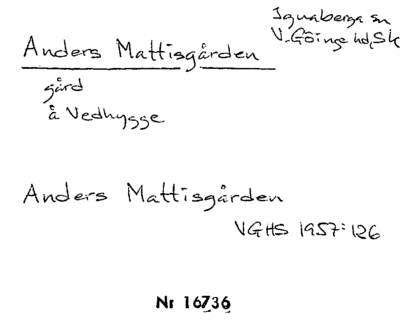 Ignaberga sn
V. Göinge hd, Sk
Anders Mattisgården
gård
å Vedhygge
Anders Mattisgården
VGHS 1957:126
Nr 16736